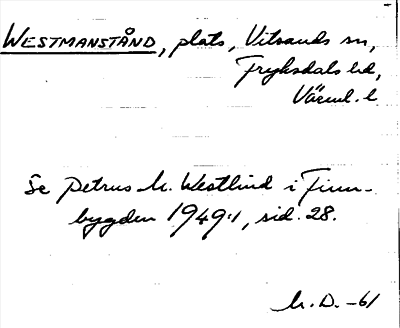 WESTMANSTÅND, plats, Vitsands sn,
Fryksdals hd,
Värml. l.
Se Petrus M. Westlind i Finn-
bygden 1949:1, sid. 28.
M. D. -61